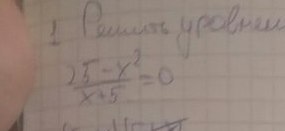 1 Решить уравнен
(25-x²)/(x+5)=0